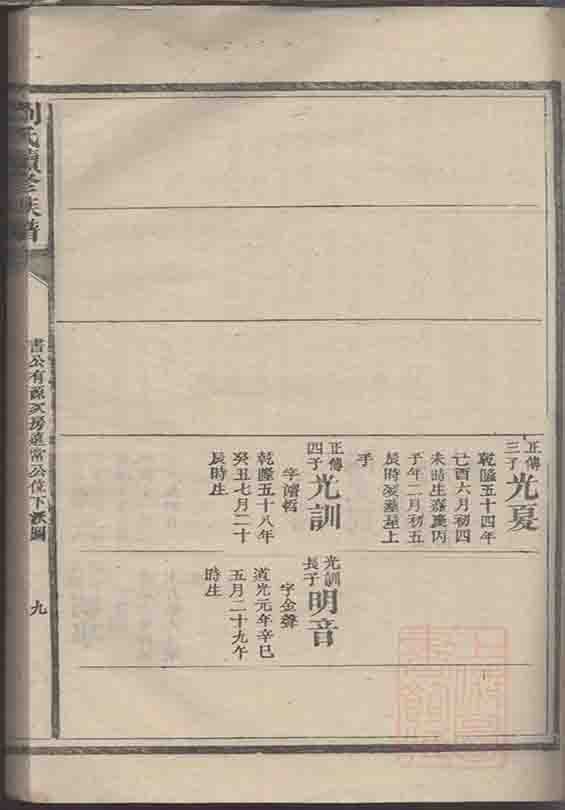 正傳三子光夏
乾隆五十四年
己酉六月初四
未時生嘉慶丙
子年二月初五
辰時歿葬屋上
手
正傳四子光訓
字濬哲
乾隆五十八年
癸丑七月二十
辰時生
光訓長子明音
字金聲
道光元年辛巳
五月二十九午
時生
劉氏續修族譜
書公有源次房
公位下派圖
九